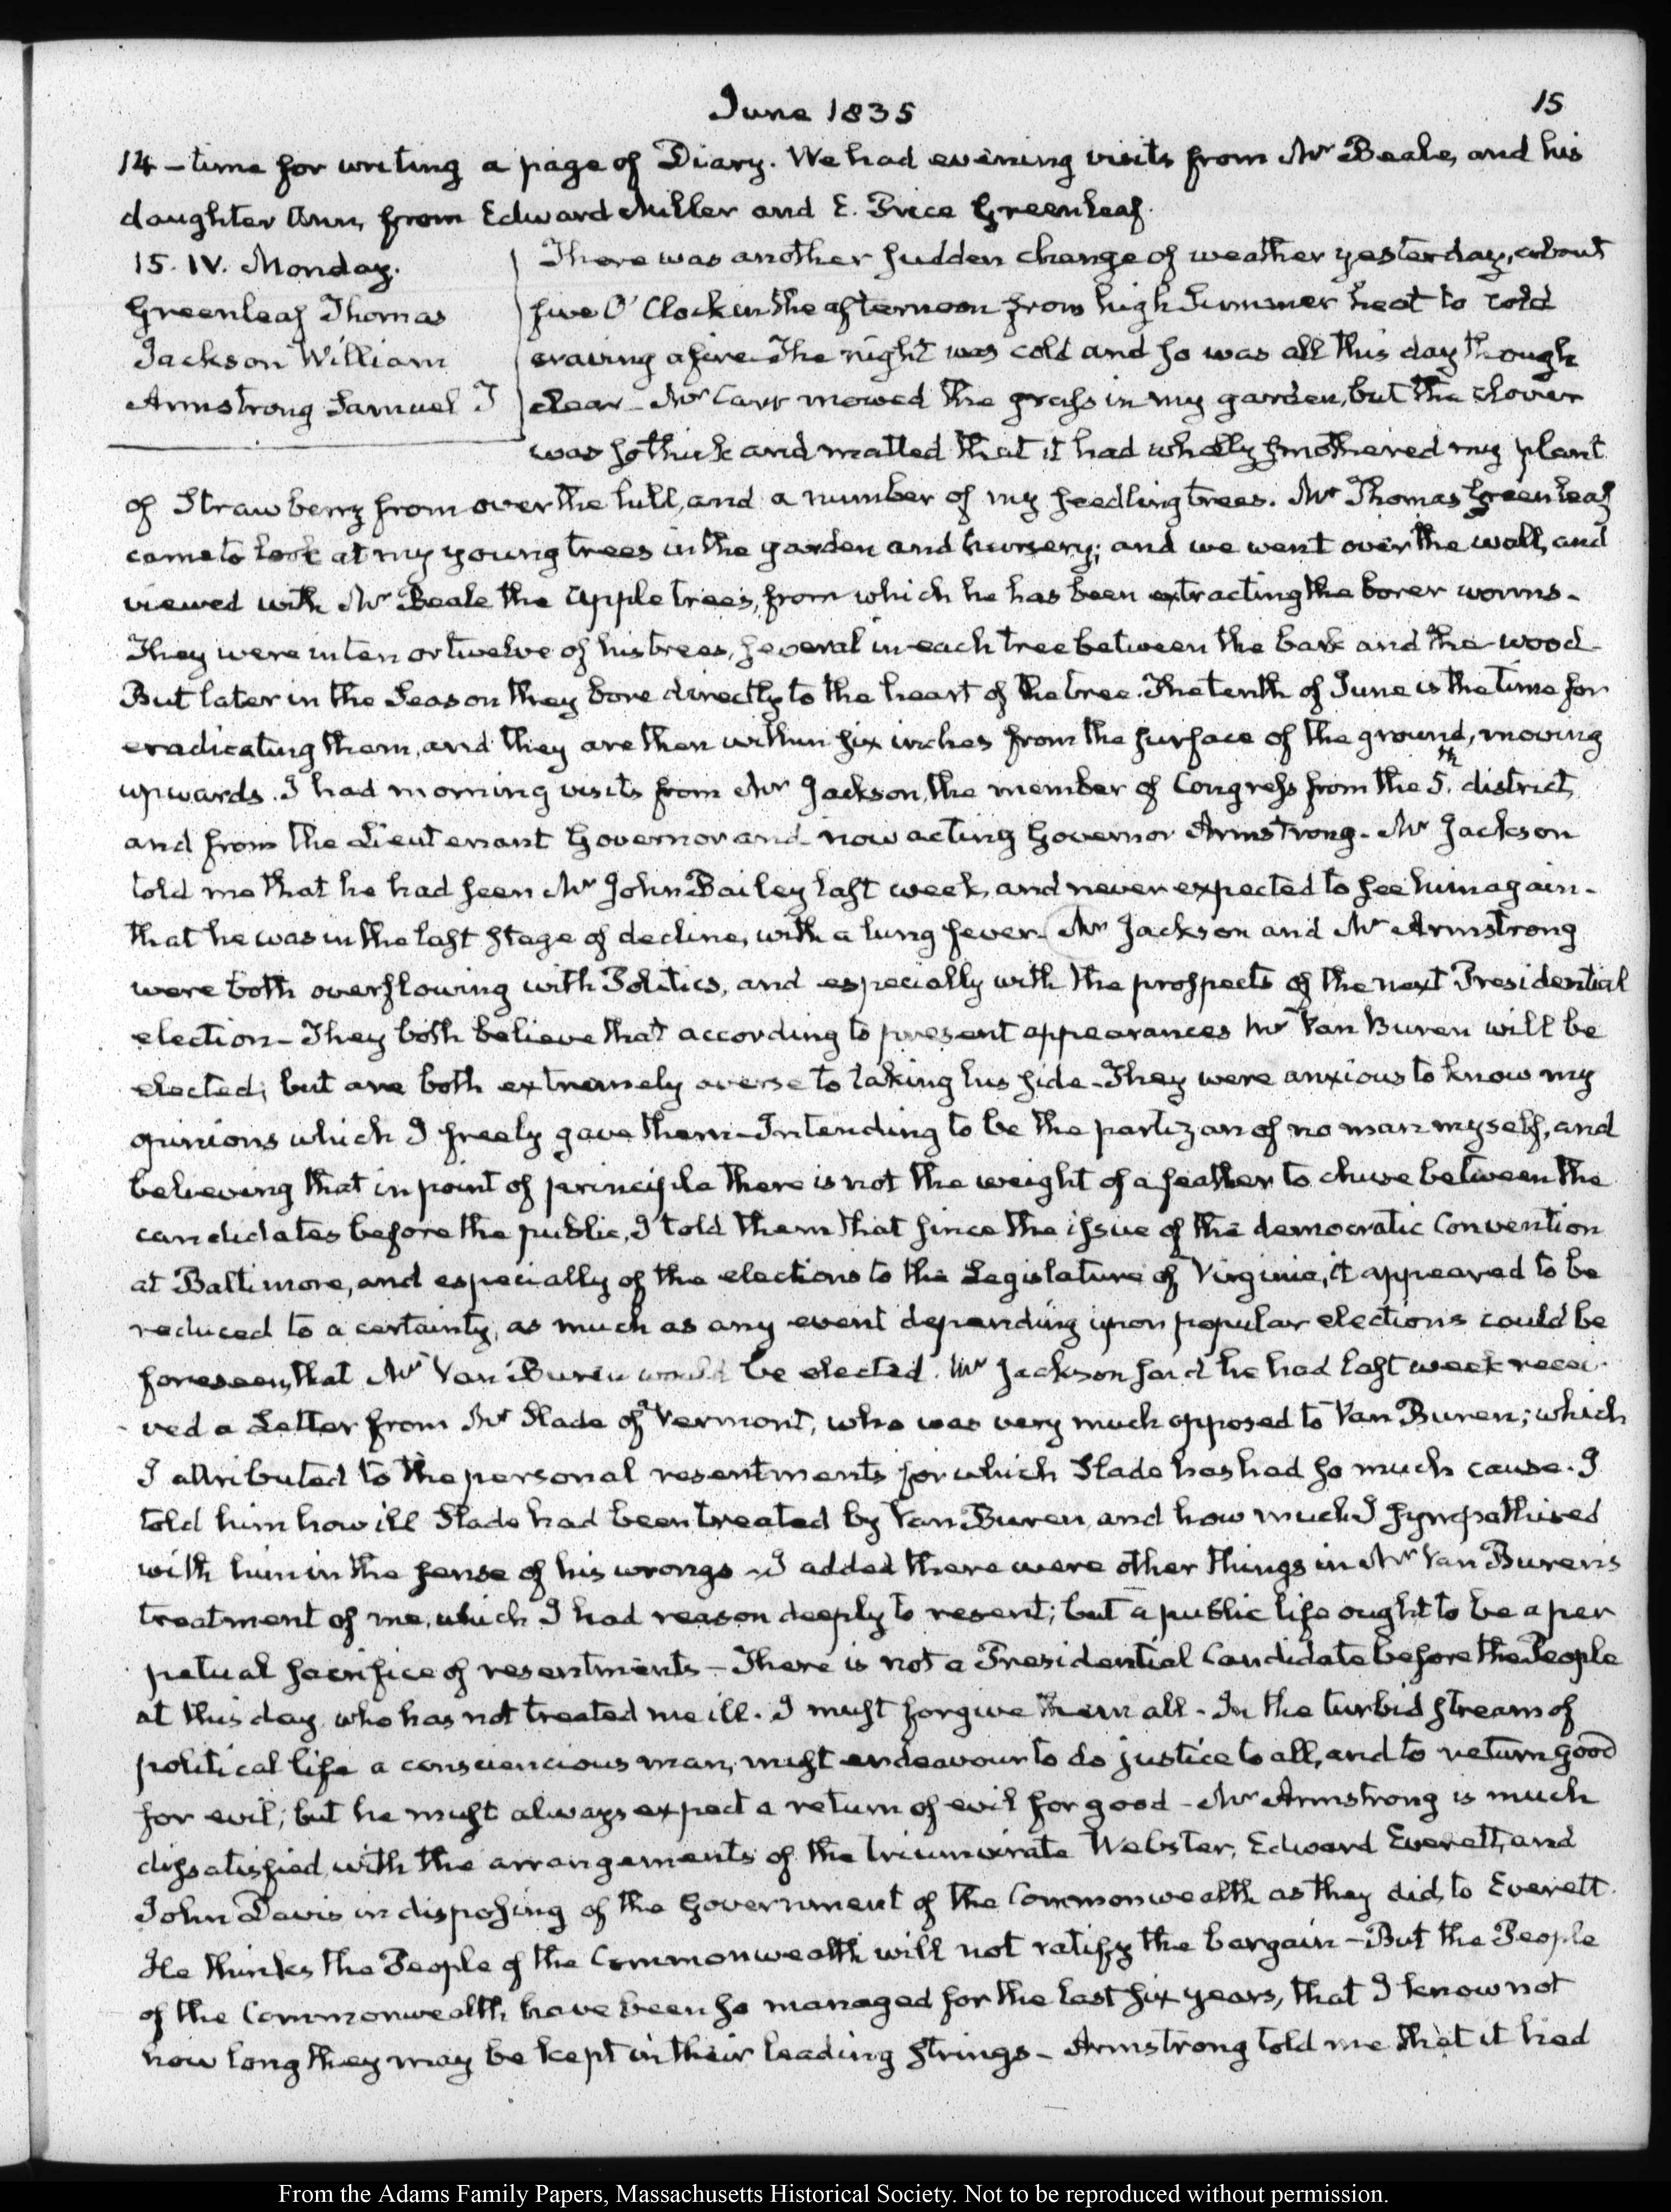 June 1835
15
14 – time for writing a page of Diary. We had evening visits from Mr Beale, and his
daughter Ann, from Edward Miller and E. Price Greenleaf.
15. IV. Monday.
Greenleaf Thomas
Jackson William
Armstrong Samuel T
There was another sudden change of weather yesterday, about
five O'Clock in the afternoon from high Summer heat to cold
craving a fire. The night was cold and so was all this day though
clear – Mr Carr mowed the grass in my garden, but the clover
was so thick and matted that it had wholly smothered my plant
of Strawberry from over the hill, and a number of my seedling trees. Mr Thomas Greenleaf
came to look at my young trees in the garden and nursery; and we went over the wall, and
viewed with Mr Beale the Apple trees, from which he has been extracting the borer worms –
They were in ten or twelve of his trees, several in each tree between the bark and the wood –
But later in the Season they bore directly to the heart of the tree. The tenth of June is the time for
eradicating them, and they are then within six inches from the surface of the ground, moving
upwards. I had morning visits from Mr Jackson, the member of Congress from the 5.th district,
and from the Lieutenant Governor and now acting Governor Armstrong – Mr Jackson
told me that he had seen Mr John Bailey last week, and never expected to see him again –
that he was in the last stage of decline, with a lung fever – Mr Jackson and Mr Armstrong
were both overflowing with Politics, and especially with the prospects of the next Presidential
election – They both believe that according to present appearances Mr Van Buren will be
elected; but are both extremely averse to taking his side – They were anxious to know my
opinions which I freely gave them – Intending to be the partizan of no man myself, and
believing that in point of principle there is not the weight of a feather to chuse between the
candidates before the public, I told them that since the issue of the democratic Convention
at Baltimore, and especially of the elections to the Legislature of Virginia, it appeared to be
reduced to a certainty, as much as any event depending upon popular elections could be
foreseen, that Mr Van Buren would be elected. Mr Jackson said he had last week recei-
ved a Letter from Mr Slade of Vermont, who was very much opposed to Van Buren; which
I attributed to the personal resentments for which Slade has had so much cause. I
told him how ill Slade had been treated by Van Buren, and how much I sympathised
with him in the sense of his wrongs – I added there were other things in Mr Van Buren's
treatment of me, which I had reason deeply to resent; but a public life ought to be a per
petual sacrifice of resentments – There is not a Presidential Candidate before the People
at this day, who has not treated me ill. I must forgive them all – In the turbid stream of
political life a consciencious man, must endeavour to do justice to all, and to return good
for evil; but he must always expect a return of evil for good – Mr Armstrong is much
dissatisfied with the arrangements of the triumvirate Webster, Edward Everett, and
John Davis in disposing of the Government of the Commonwealth as they did, to Everett.
He thinks the People of the Commonwealth will not ratify the bargain – But the People
of the Commonwealth, have been so managed for the last six years, that I know not
how long they may be kept in their leading strings – Armstrong told me that it had
From the Adams Family Papers, Massachusetts Historical Society. Not to be reproduced without permission.